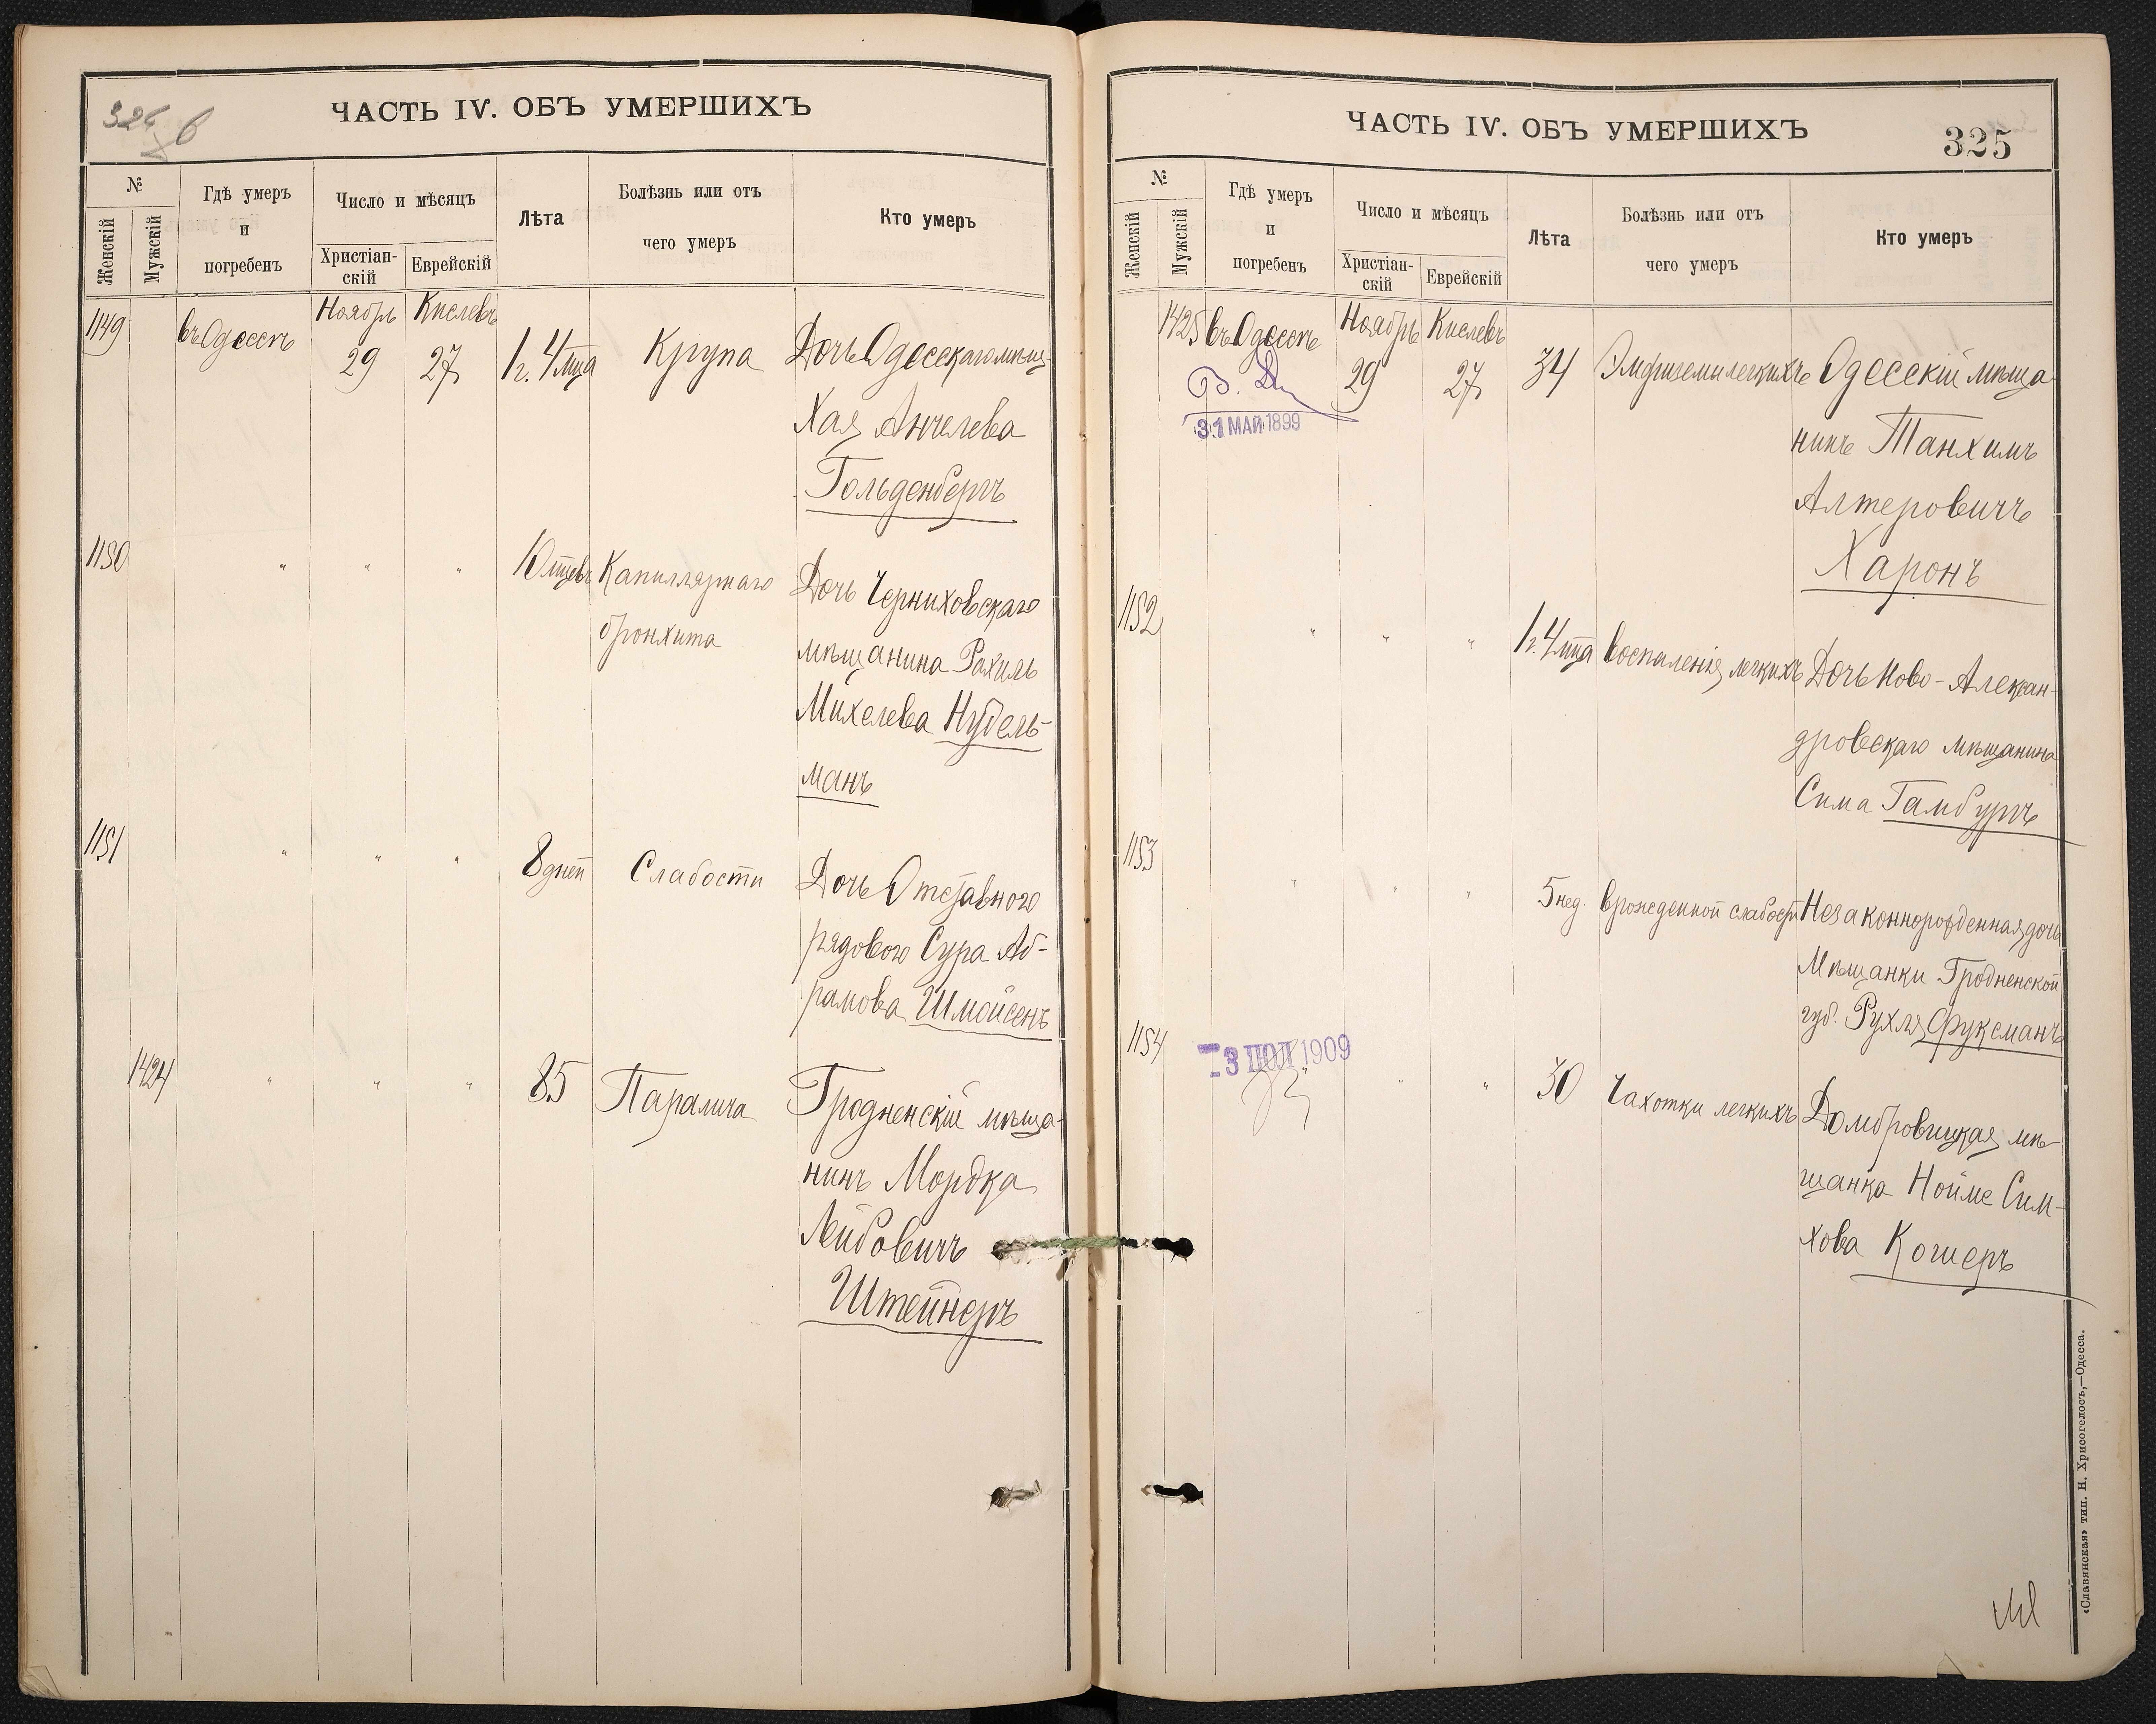 ЧАСТЬ IV. ОБЪ УМЕРШИХЪ
№
Женскій
Мужскій
Гдѣ умеръ
и
погребенъ
Число и мѣсяцъ
Христіан-
скій
Еврейскій
Лѣта
Болѣзнь или отъ
чего умеръ
Кто умеръ
1149
въ Одессѣ
Ноябрь
29
Кислевъ
27
1 г. 4 мца
Крупа
Дочь Одесскаго мѣщ-
Хая Анчелева
Гольденбергъ
1150
" " "
10 мцевъ
Капиллярнаго
бронхита
Дочь Черниховскаго
мѣщанина Рахиль
Михелева Нудель-
манъ
1151
" " "
8 дней
Слабости
Дочь Отставного
рядового Сура Аб-
рамова Шмойсенъ
1424
" " "
85
Паралича
Гродненскій мѣща-
нинъ Мордка
Лейбовичъ
Штейнеръ
ЧАСТЬ IV. ОБЪ УМЕРШИХЪ
325
№
Женскій
Мужскій
Гдѣ умеръ
и
погребенъ
Число и мѣсяцъ
Христіан-
скій
Еврейскій
Лѣта
Болѣзнь или отъ
чего умеръ
Кто умеръ
1425
въ Одессѣ
31 МАЙ 1899
Ноябрь
29
Кислевъ
27
34
Эмфиземи легкихъ
Одесскій мѣща-
нинъ Танхимъ
Алтеровичъ
Харонъ
1152
" " "
1 г. 4 мца
воспаленія легкихъ
Дочь Ново-Алексан-
дровскаго мѣщанина
Сима Гамбургъ
1153
" " "
5 нед.
врожденной слабости
Незаконнорожденная дочь
Мѣщанки Гродненской
губ. Рухля Фуксманъ
1154
13 ІЮЛ 1909
" " "
30
Чахотки легкихъ
Домбровицкая мѣ-
щанка Нойме Сим-
хова Кошеръ
«Славянская» тип. Н. Хрисогелосъ,—Одесса.